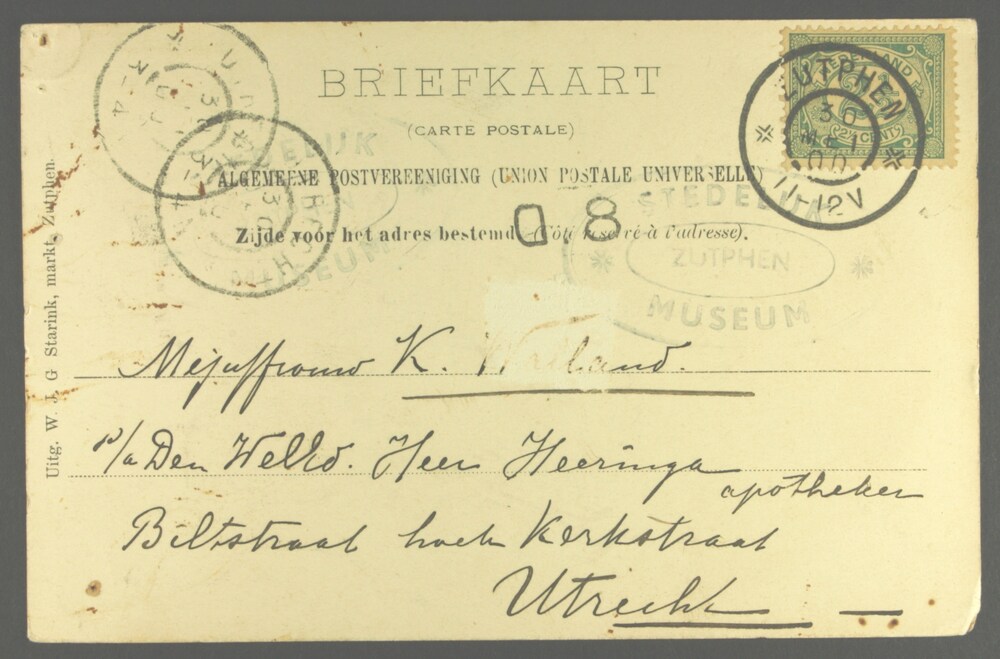 BRIEFKAART
(CARTE POSTALE)
ALGEMEENE POSTVEREENIGING (UNION POSTALE UNIVERSELLE)
Zijde voor het adres bestemd. (Côté réservé à l'adresse).
D.8
ZUTPHEN
30
MEI
00
11-12V
2½ CENT
STEDELIJK
ZUTPHEN
MUSEUM
STEDELIJK
MUSEUM
Mejuffrouw K.
p/a Den WelEd. Heer Heeringa
apotheker
Biltstraat hoek Kerkstraat
Utrecht
Uitg. W. J. G Starink, markt, Zutphen.